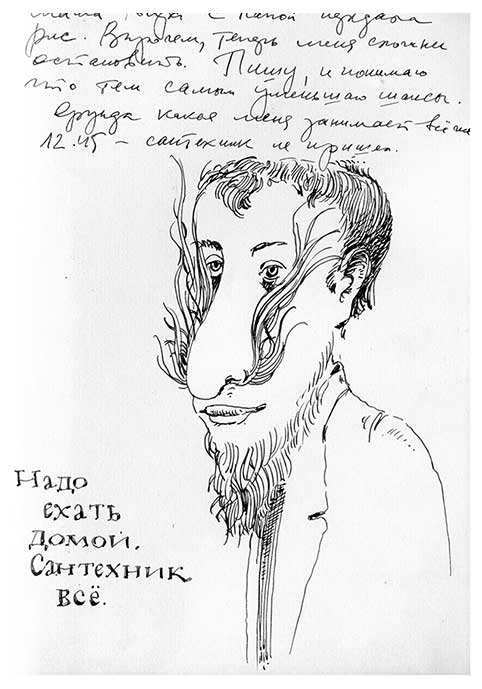 с папой передала
рис. Впрочем, теперь меня сложно
остановить. Пишу, и понимаю
что тем самым уменьшаю шансы.
Ерунда какая меня занимает всё же
12.15 – сантехник не пришел.
Надо
ехать
домой.
Сантехник
всё.